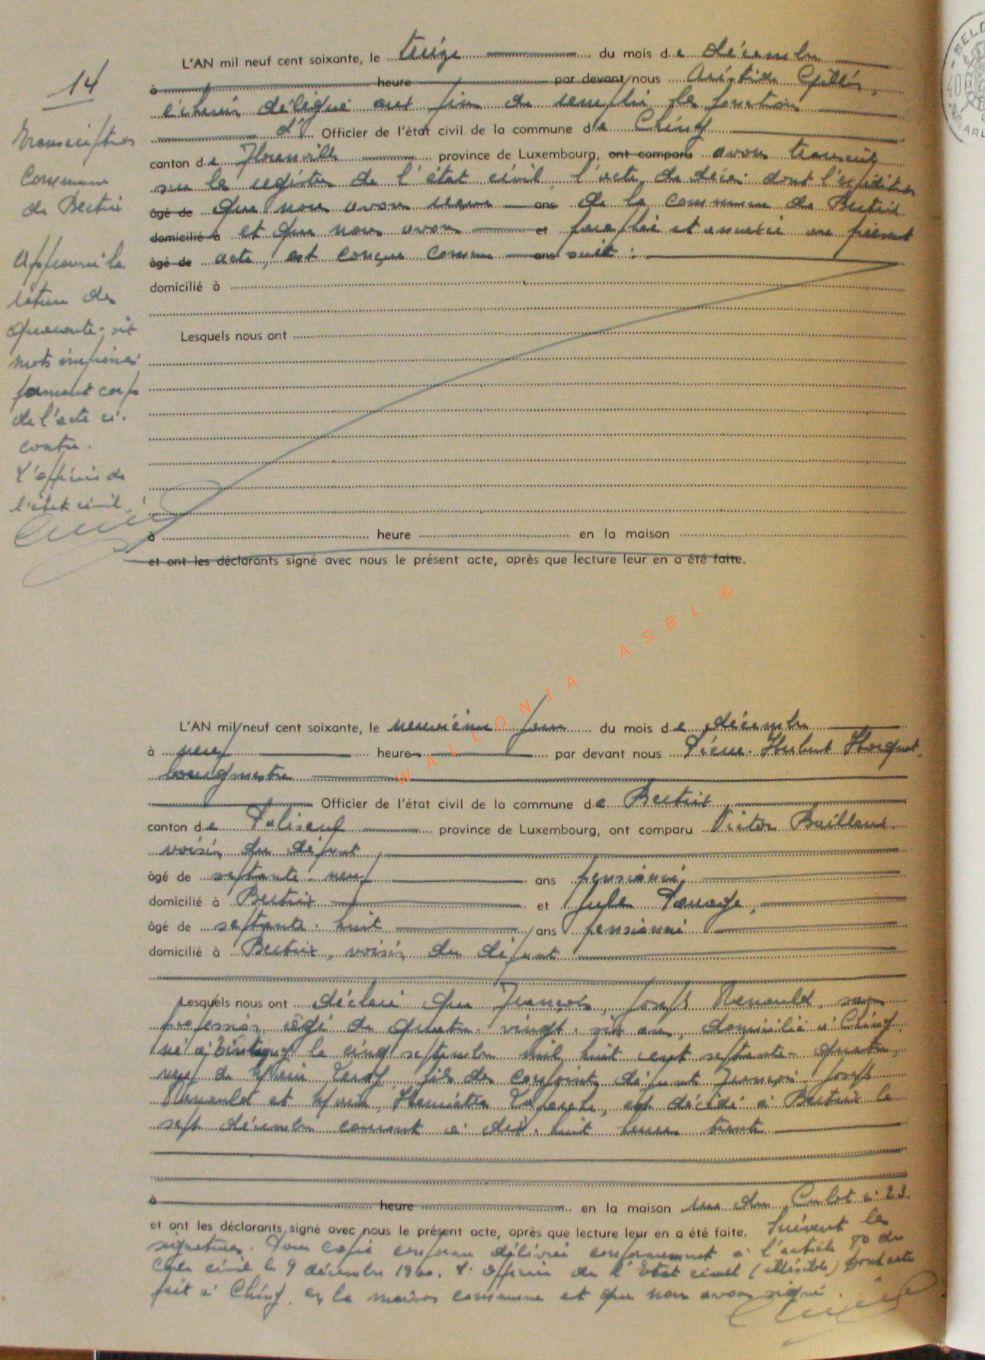 14
Transcription
Commune
de Bertrix
Approuvé la
rature des
quarante-six
mots imprimés
formant corps
de l'acte ci-
contre.
L'officier de
l'état civil,
L'AN mil neuf cent soixante, le treize du mois de décembre
à heure par devant nous Aristide Gillet,
échevin délégué aux fins de remplir les fonctions
d' Officier de l'état civil de la commune de Chiny
canton de Florenville province de Luxembourg, ont comparu avons transcrit
sur le registre de l'état civil, l'acte de décès dont l'expédition
âgé de que nous avons reçue ans de la commune de Bertrix
domicilié à et que nous avons et paraphée et annexée au présent
âgé de acte, est conçue comme ans suit :
domicilié à
Lesquels nous ont
à heure en la maison
et ont les déclarants signé avec nous le présent acte, après que lecture leur en a été faite.
WALLONIA ASBL ®
L'AN mil neuf cent soixante, le neuvième jour du mois de décembre
à neuf heures par devant nous Pierre Hubert
bourgmestre
Officier de l'état civil de la commune de Bertrix
canton de Paliseul province de Luxembourg, ont comparu Victor
voisin du défunt
âgé de septante neuf ans pensionné,
domicilié à Bertrix et Jules
âgé de septante-huit ans pensionné
domicilié à Bertrix, voisin du défunt
Lesquels nous ont déclaré que François, Joseph Renauld, sans
profession, âgé de quatre-vingt-six ans, domicilié à Chiny,
né à le cinq septembre mil huit cent septante-quatre,
veuf de Marie fils des conjoints défunts François Joseph
Renauld et Marie, Henriette est décédé à Bertrix le
sept décembre courant à dix-huit heures trente
à heure en la maison rue du Culot n° 23.
et ont les déclarants signé avec nous le présent acte, après que lecture leur en a été faite. Suivent les
signatures. Pour copie conforme délivrée conformément à l'article 80 du
Code civil le 9 décembre 1960. L'officier de l'Etat civil (illisible) Dont acte
fait à Chiny, en la maison communale et que nous avons signé.